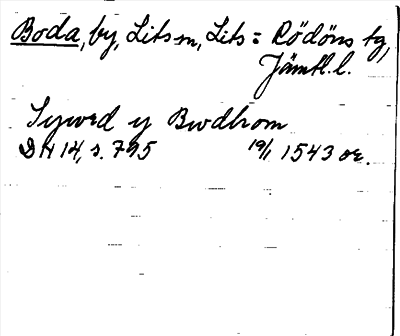 Boda, by, Lits sn, Lits= Rödöns tg,
Jämtl. l.
Sywrd y Bwdhrom
DN 14, s. 795 19/1 1543 or.